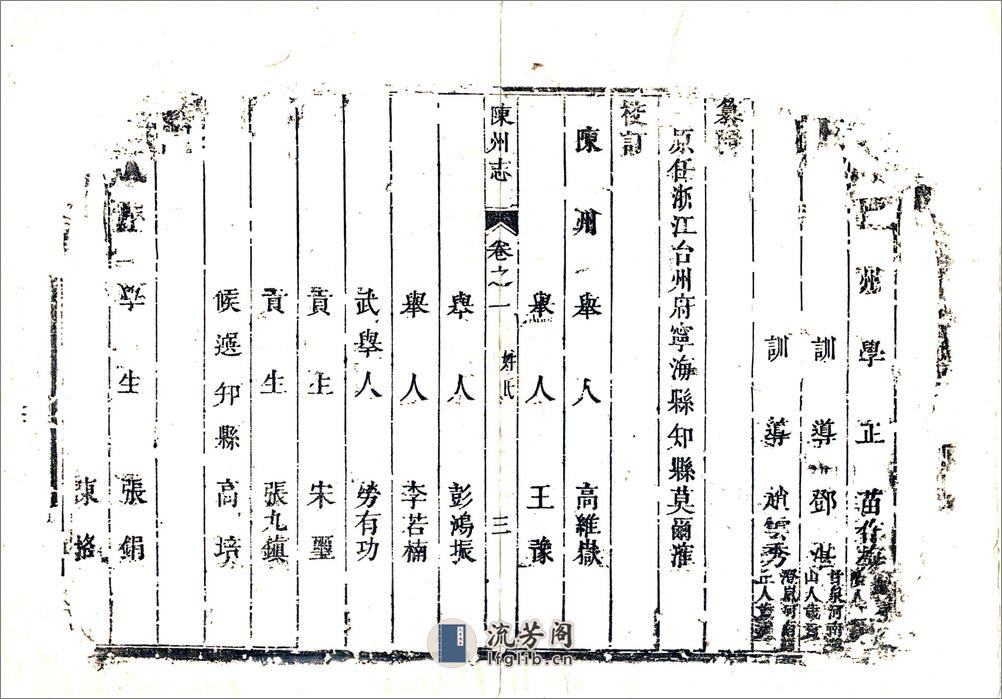 州學正 苗
訓導 鄧
山人歲貢
訓導 趙雲秀
丘人歲貢
纂
原任浙江台州府寧海縣知縣莫爾漼
校訂
陳州舉人 高維嶽
舉人 王豫
陳州志 卷之一 姓氏 三
舉人 彭鴻振
舉人 李若楠
武舉人 勞有功
貢生 宋璽
貢生 張九鎮
候選知縣 高培
生 張絹
東
流芳阁
lfglib.cn